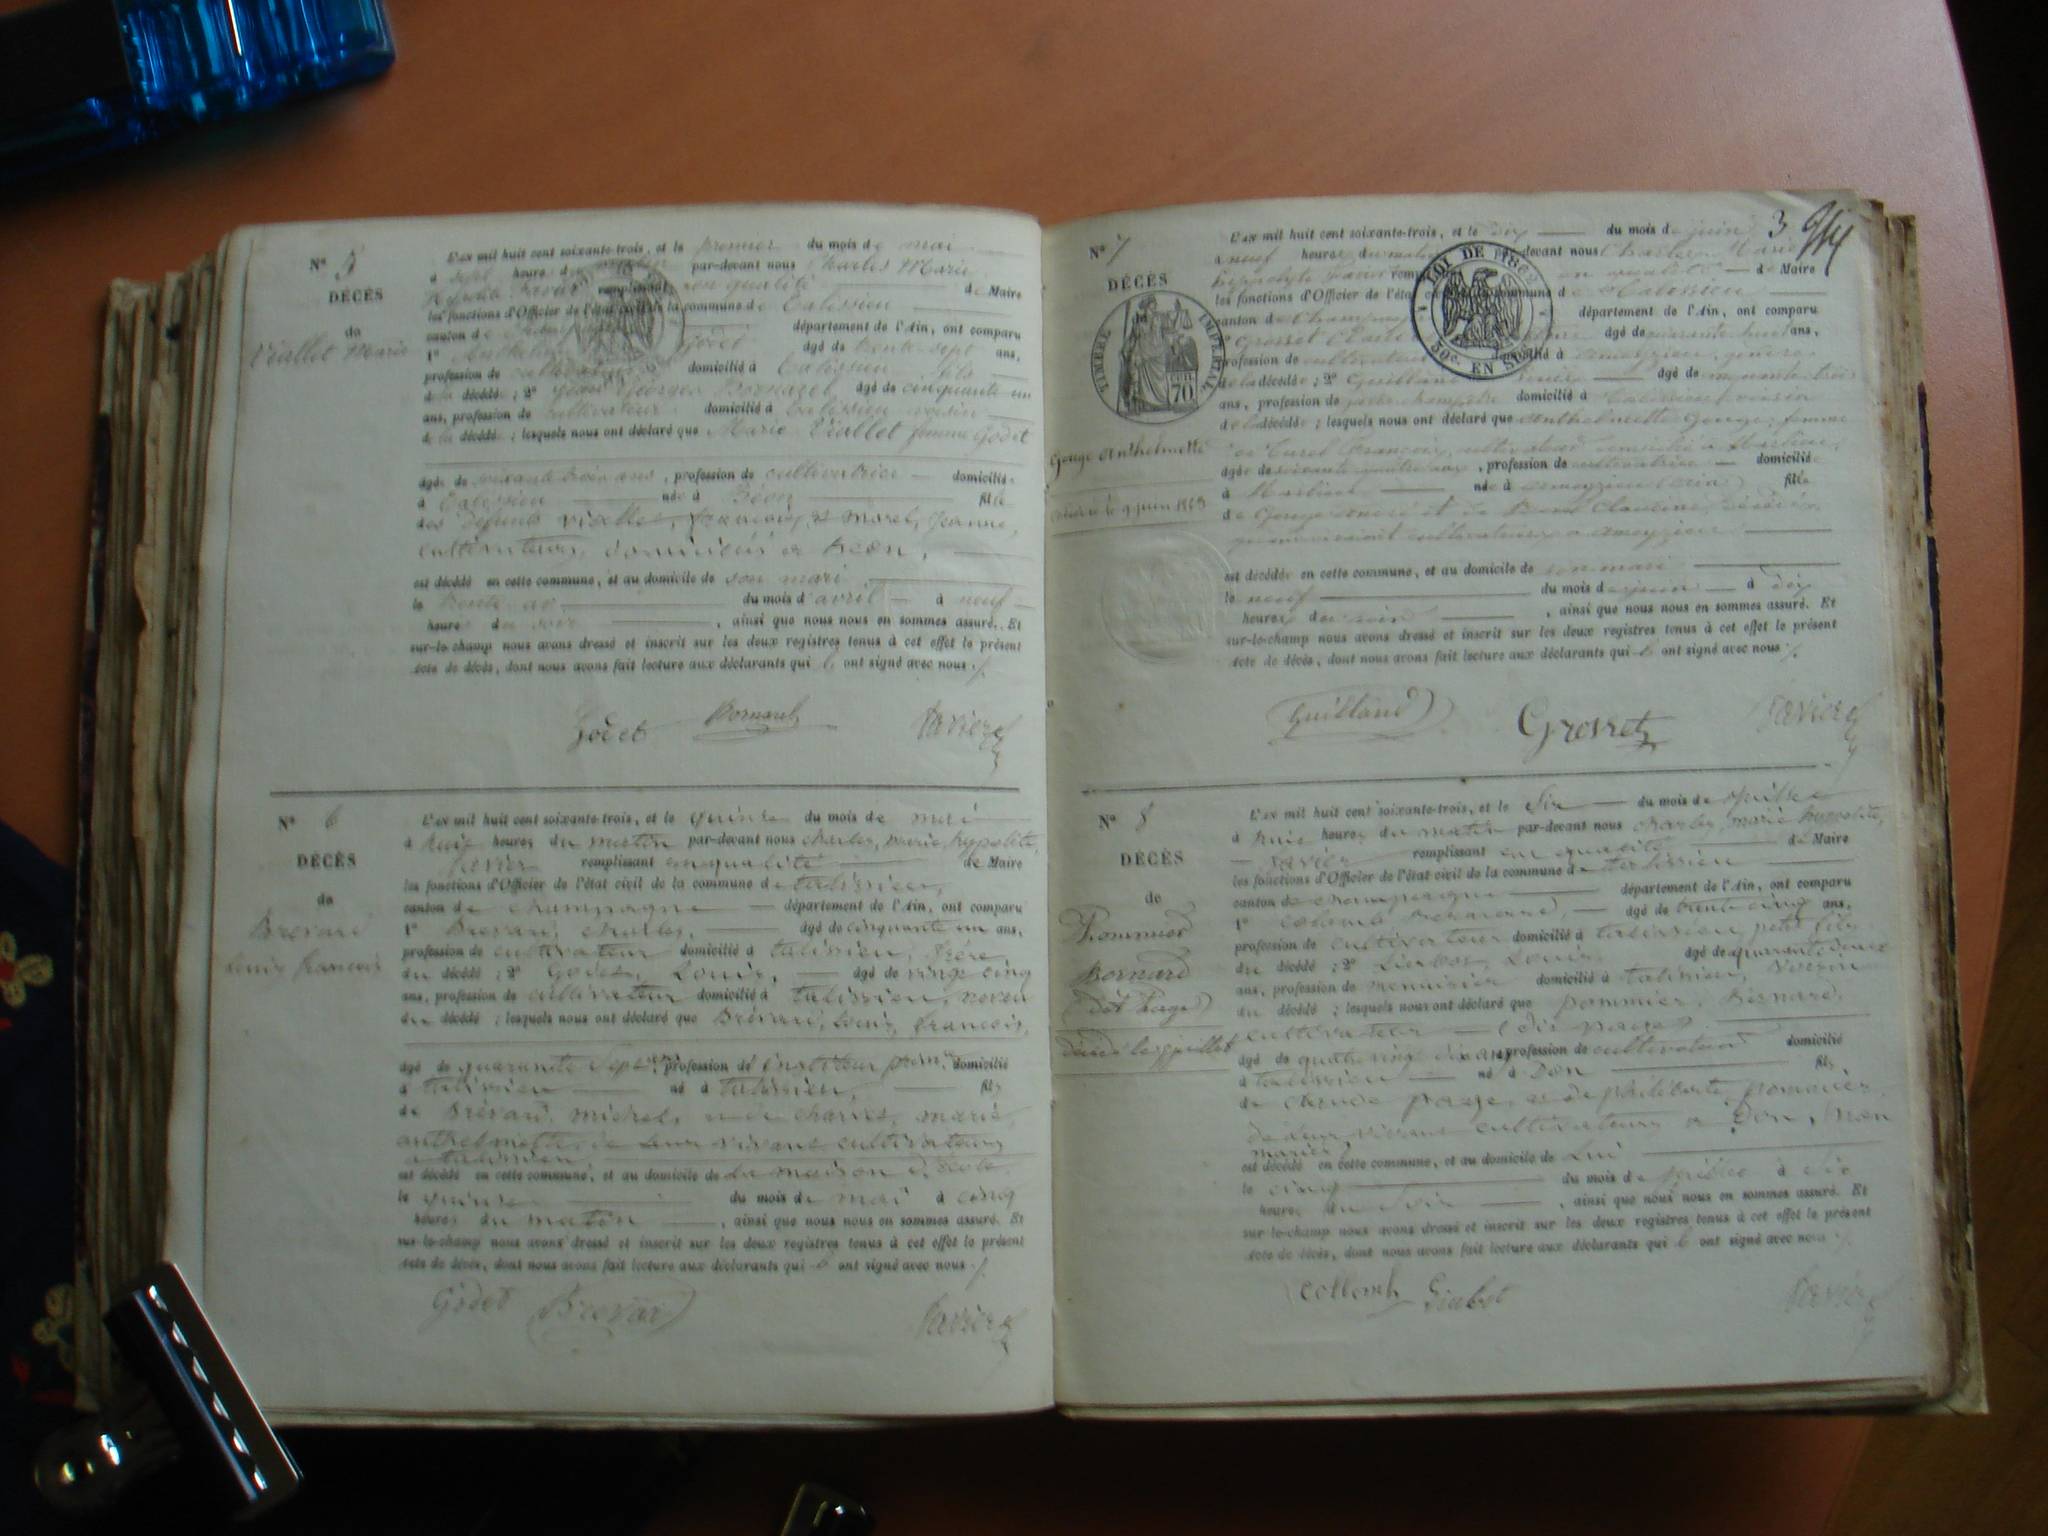 N° 5
DÉCÈS
de
Viallet Marie
L'an mil huit cent soixante-trois, et le premier du mois de mai
à sept heures du par-devant nous Charles Marie
remplissant en qualité de Maire
les fonctions d'Officier de l'état civil de la commune de Talissieu
canton de département de l'Ain, ont comparu
1° Godet âgé de trente-sept ans,
profession de cultivateur domicilié à Talissieu fils
de la décédée ; 2° Georges Bornarel âgé de cinquante un
ans, profession de cultivateur domicilié à Talissieu voisin
de la décédée ; lesquels nous ont déclaré que Marie Viallet femme Godet
âgée de soixante trois ans, profession de cultivatrice domiciliée
à Talissieu née à Béon fille
des défunts Viallet, françois, et Morel, Jeanne,
cultivateurs, domiciliés à Béon,
est décédé en cette commune, et au domicile de son mari
le trente du mois d'avril à neuf
heures du soir, ainsi que nous nous en sommes assuré. Et
sur-le-champ nous avons dressé et inscrit sur les deux registres tenus à cet effet le présent
acte de décès, dont nous avons fait lecture aux déclarants qui ont signé avec nous
Godet Bornarel
N° 6
DÉCÈS
de
Brévard
Louis françois
L'an mil huit cent soixante-trois, et le quinze du mois de mai
à huit heures du matin par-devant nous charles, marie, hypolite,
remplissant en qualité de Maire
les fonctions d'Officier de l'état civil de la commune de talissieu,
canton de champagne département de l'Ain, ont comparu
1° Brévard, charles, âgé de cinquante un ans,
profession de cultivateur domicilié à talissieu, frère
du décédé ; 2° Godet, Louis, âgé de vingt cinq
ans, profession de cultivateur domicilié à talissieu, neveu
du décédé ; lesquels nous ont déclaré que Brévard, Louis, françois,
âgé de quarante sept ans, profession de domicilié
à talissieu né à talissieu, fils
de Brévard, michel, et de charvet, marie
anthelmette, de leur vivant cultivateurs
à talissieu
est décédé en cette commune, et au domicile de la maison d'école
le quinze du mois de mai à cinq
heures du matin, ainsi que nous nous en sommes assuré. Et
sur-le-champ nous avons dressé et inscrit sur les deux registres tenus à cet effet le présent
acte de décès, dont nous avons fait lecture aux déclarants qui ont signé avec nous
Godet Brévard
3
N° 7
DÉCÈS
TIMBRE IMPÉRIAL
70
LOI DE 1862
50c. EN SUS
Gouge Anthelmette
décédée le 9 juin 1863
L'an mil huit cent soixante-trois, et le dix du mois de juin
à neuf heures du matin par-devant nous Charles Marie
en qualité de Maire
les fonctions d'Officier de l'état commune de Talissieu
canton de Champagne département de l'Ain, ont comparu
âgé de quarante huit ans,
profession de cultivateur domicilié à ameyzieu, gendre
de la décédée ; 2° Guilland Louis âgé de cinquante trois
ans, profession de garde champêtre domicilié à Talissieu voisin
de la décédée ; lesquels nous ont déclaré que Anthelmette Gouge, femme
âgée de soixante quatre ans, profession de cultivatrice domiciliée
à née à ameyzieu fille
de Gouge et de Claudine, décédés
cultivateurs à ameyzieu
est décédée en cette commune, et au domicile de son mari
le neuf du mois de juin à dix
heures du soir, ainsi que nous nous en sommes assuré. Et
sur-le-champ nous avons dressé et inscrit sur les deux registres tenus à cet effet le présent
acte de décès, dont nous avons fait lecture aux déclarants qui ont signé avec nous
Guilland
N° 8
DÉCÈS
de
Pommier
Bernard
(dit Page)
décédé le 5 juillet
L'an mil huit cent soixante-trois, et le six du mois de juillet
à huit heures du matin par-devant nous charles, marie, hyppolite,
remplissant en qualité de Maire
les fonctions d'Officier de l'état civil de la commune de talissieu
canton de champagne département de l'Ain, ont comparu
1° Colomb âgé de trente cinq ans,
profession de cultivateur domicilié à talissieu, petit fils
du décédé ; 2° Louis, âgé de quarante deux
ans, profession de menuisier domicilié à talissieu, voisin
du décédé ; lesquels nous ont déclaré que pommier, Bernard,
cultivateur (dit page)
âgé de quatre vingt dix ans, profession de cultivateur domicilié
à talissieu né à Don fils
de claude page, et de philiberte pommier,
de leur vivant cultivateurs à Don, non
mariés
est décédé en cette commune, et au domicile de Lui
le cinq du mois de juillet à six
heures du soir, ainsi que nous nous en sommes assuré. Et
sur-le-champ nous avons dressé et inscrit sur les deux registres tenus à cet effet le présent
acte de décès, dont nous avons fait lecture aux déclarants qui ont signé avec nous
Collomb